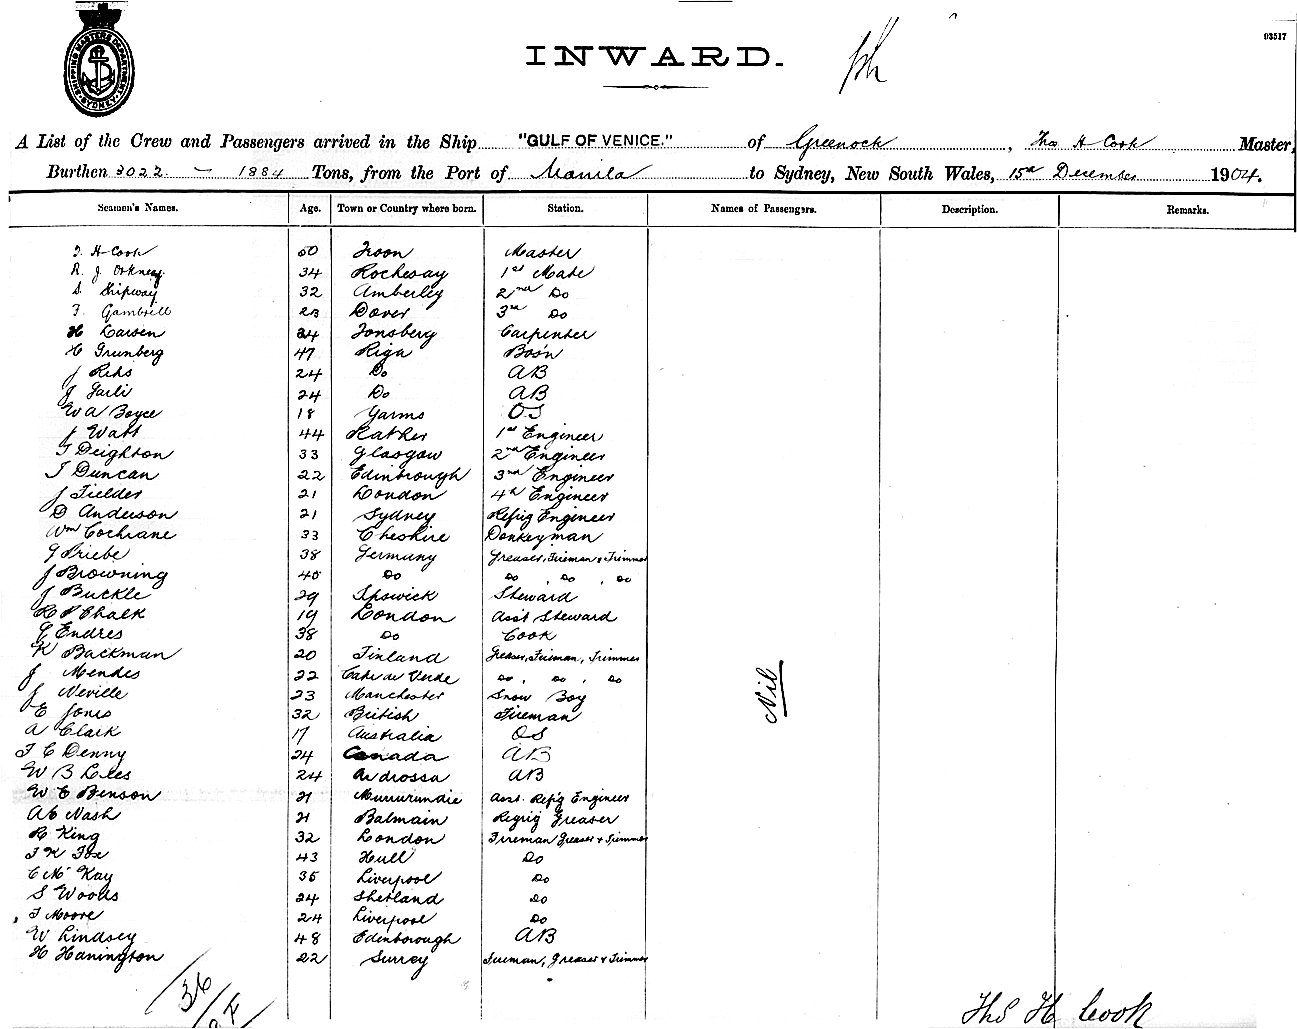 SHIPPING MASTERS DEPARTMENT SYDNEY
03517
INWARD.
A List of the Crew and Passengers arrived in the Ship "GULF OF VENICE." of Greenock, Thos H Cook Master,
Burthen 3022 - 1884 Tons, from the Port of Manila to Sydney, New South Wales, 15th December 1904.
Seamen's Names. Age. Town or Country where born. Station. Names of Passengers. Description. Remarks.
T. H Cook 50 Troon Master
R. J. Orkney 34 Rothesay 1st Mate
S. Shipway 32 Amberley 2nd Do
F. Gambrill 23 Dover 3rd Do
H Larsen 24 Tonsberg Carpenter
H Grunberg 47 Riga Bos'n
J Riks 24 Do AB
J 24 Do AB
W A Boyce 18 Yarms OS
J Watt 44 1st Engineer
T Deighton 33 Glasgow 2nd Engineer
T Duncan 22 Edinbrough 3rd Engineer
J Fielder 21 London 4th Engineer
D Anderson 21 Sydney Refrig Engineer
Wm Cochrane 33 Cheshire Donkeyman
G Priebe 38 Germany Greaser, Fireman & Trimmer
J Browning 40 Do Do , Do , Do
J Buckle 29 Ipswick Steward
R P Chalk 19 London Asst Steward
G Endres 38 Do Cook
K Backman 20 Finland Greaser, Fireman, Trimmer
J Mendes 22 Cape de Verde Do , Do , Do
J Neville 23 Manchester Snow Boy
E Jones 32 British Fireman
A Clark 17 Australia OS
F C Denny 24 Canada AB
W B Liles 24 Ardrossa AB
W E Benson 21 Murrurundie Asst. Refrig Engineer
A E Nash 21 Balmain Regrig Greaser
R King 32 London Fireman Greaser & Trimmer
T K Fox 43 Hull Do
C McKay 35 Liverpool Do
S Woods 24 Shetland Do
T Moore 24 Liverpool Do
W Lindsey 48 Edenborough AB
H Hanington 22 Surrey Fireman, Greaser & Trimmer
Nil
36
Ths H Cook